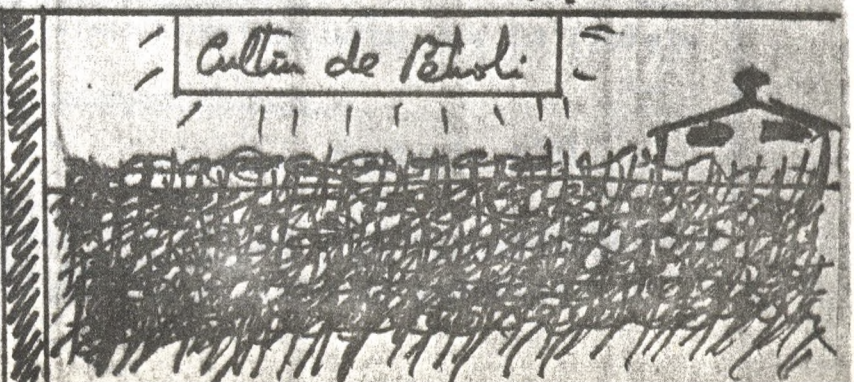 Cultiu de Petroli